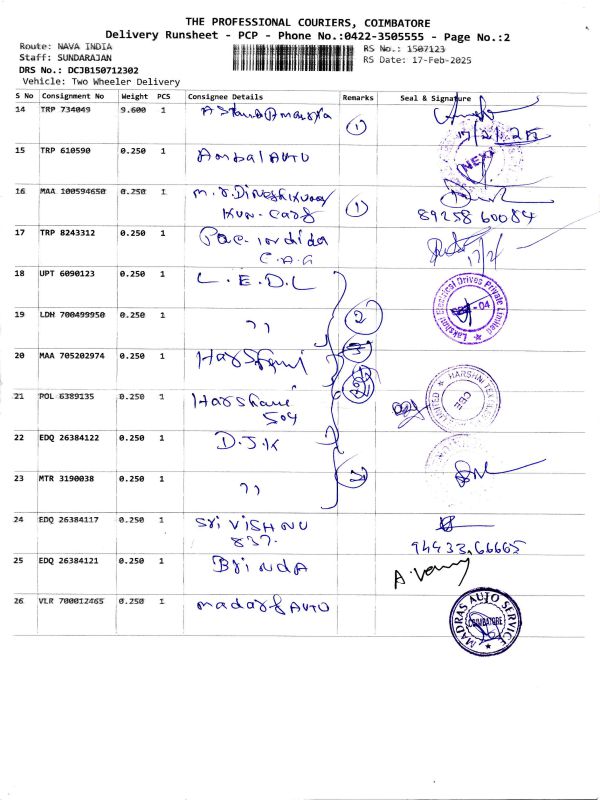 THE PROFESSIONAL COURIERS, COIMBATORE
Delivery Runsheet - PCP - Phone No.:0422-3505555 - Page No.:2
Route: NAVA INDIA
RS No.: 1507123
Staff: SUNDARAJAN
RS Date: 17-Feb-2025
DRS No.: DCJB150712302
Vehicle: Two Wheeler Delivery
S No Consignment No Weight PCS Consignee Details Remarks Seal & Signature
14 TRP 734049 9.600 1 1
17/2/25
15 TRP 610590 0.250 1 Ambal AUTO NEXT
16 MAA 100594650 0.250 1 M.S. Dineshkumar 1
89258 60084
17 TRP 8243312 0.250 1
C.A.G 17/2
18 UPT 6090123 0.250 1 L.E.D.L
Lakshmi Electrical Drives Private Limited
19 LDH 700499950 0.250 1 ,, 2
20 MAA 705202974 0.250 1 Harshni
21 POL 6389135 0.250 1 Harshani
504
HARSHNI LIMITED
22 EDQ 26384122 0.250 1 D.J.K
23 MTR 3190038 0.250 1 ,,
24 EDQ 26384117 0.250 1 Sri VISHNU
837.
94433.66665
25 EDQ 26384121 0.250 1 BrindA
26 VLR 700012465 0.250 1 madars AUTO
MADRAS AUTO SERVICE
COIMBATORE